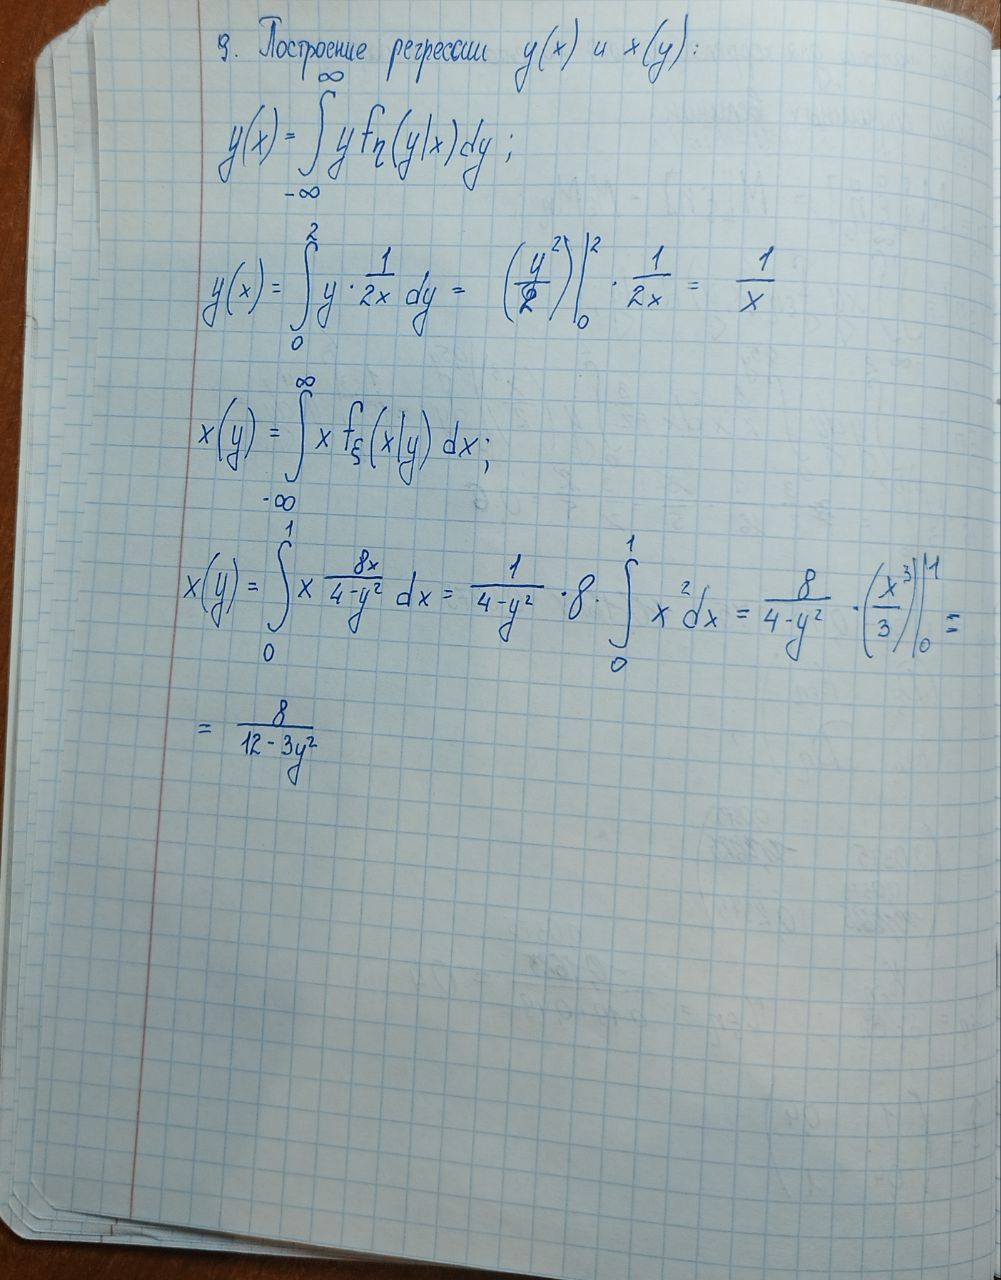 9. Построение регрессии y(x) и x(y):
y(x) = ∫_{-∞}^{∞} y f_η(y|x) dy ;
y(x) = ∫_{0}^{2} y · \frac{1}{2x} dy = (\frac{y^2}{2})|_{0}^{2} · \frac{1}{2x} = \frac{1}{x}
x(y) = ∫_{-∞}^{∞} x f_ξ(x|y) dx ;
x(y) = ∫_{0}^{1} x \frac{8x}{4-y^2} dx = \frac{1}{4-y^2} · 8 · ∫_{0}^{1} x^2 dx = \frac{8}{4-y^2} · (\frac{x^3}{3})|_{0}^{1} =
= \frac{8}{12-3y^2}